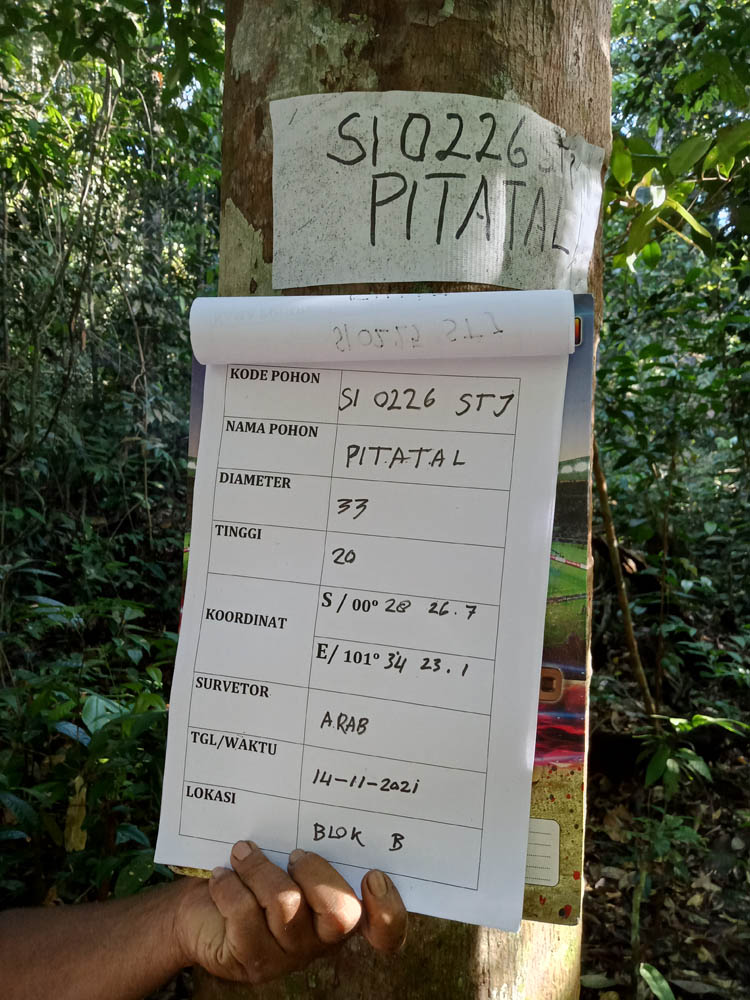 SI 0226 STJ
PITATAL
SI 0225 STJ
KODE POHON SI 0226 STJ
NAMA POHON PITATAL
DIAMETER 33
TINGGI 20
KOORDINAT S / 00° 28 26.7
E/ 101° 34 23.1
SURVETOR ARAB
TGL/WAKTU 14-11-2021
LOKASI BLOK B